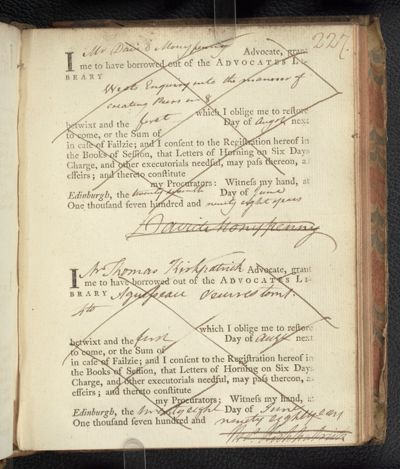 227.
I Mr David Monypenny Advocate, grant
me to have borrowed out of the ADVOCATES LI-
BRARY
Wests Enquiry into the manner of
creating Peers in 8
which I oblige me to restore
betwixt and the first Day of Augst next
to come, or the Sum of
in case of Failzie; and I consent to the Registration hereof in
the Books of Session, that Letters of Horning on Six Days
Charge, and other executorials needful, may pass thereon, as
effeirs; and thereto constitute
my Procurators: Witness my hand, at
Edinburgh, the Day of June
One thousand seven hundred and ninety eight years
David Monypenny
I Mr Thomas Kirkpatrick Advocate, grant
me to have borrowed out of the ADVOCATES LI-
BRARY Aguesseau Oeuvres tom 1.
4to
which I oblige me to restore
betwixt and the first Day of Augt next
to come, or the Sum of
in case of Failzie; and I consent to the Registration hereof in
the Books of Session, that Letters of Horning on Six Days
Charge, and other executorials needful, may pass thereon, as
effeirs; and thereto constitute
my Procurators; Witness my hand, at
Edinburgh, the twenty eight Day of June
One thousand seven hundred and ninety eight years
Tho. Kirkpatrick